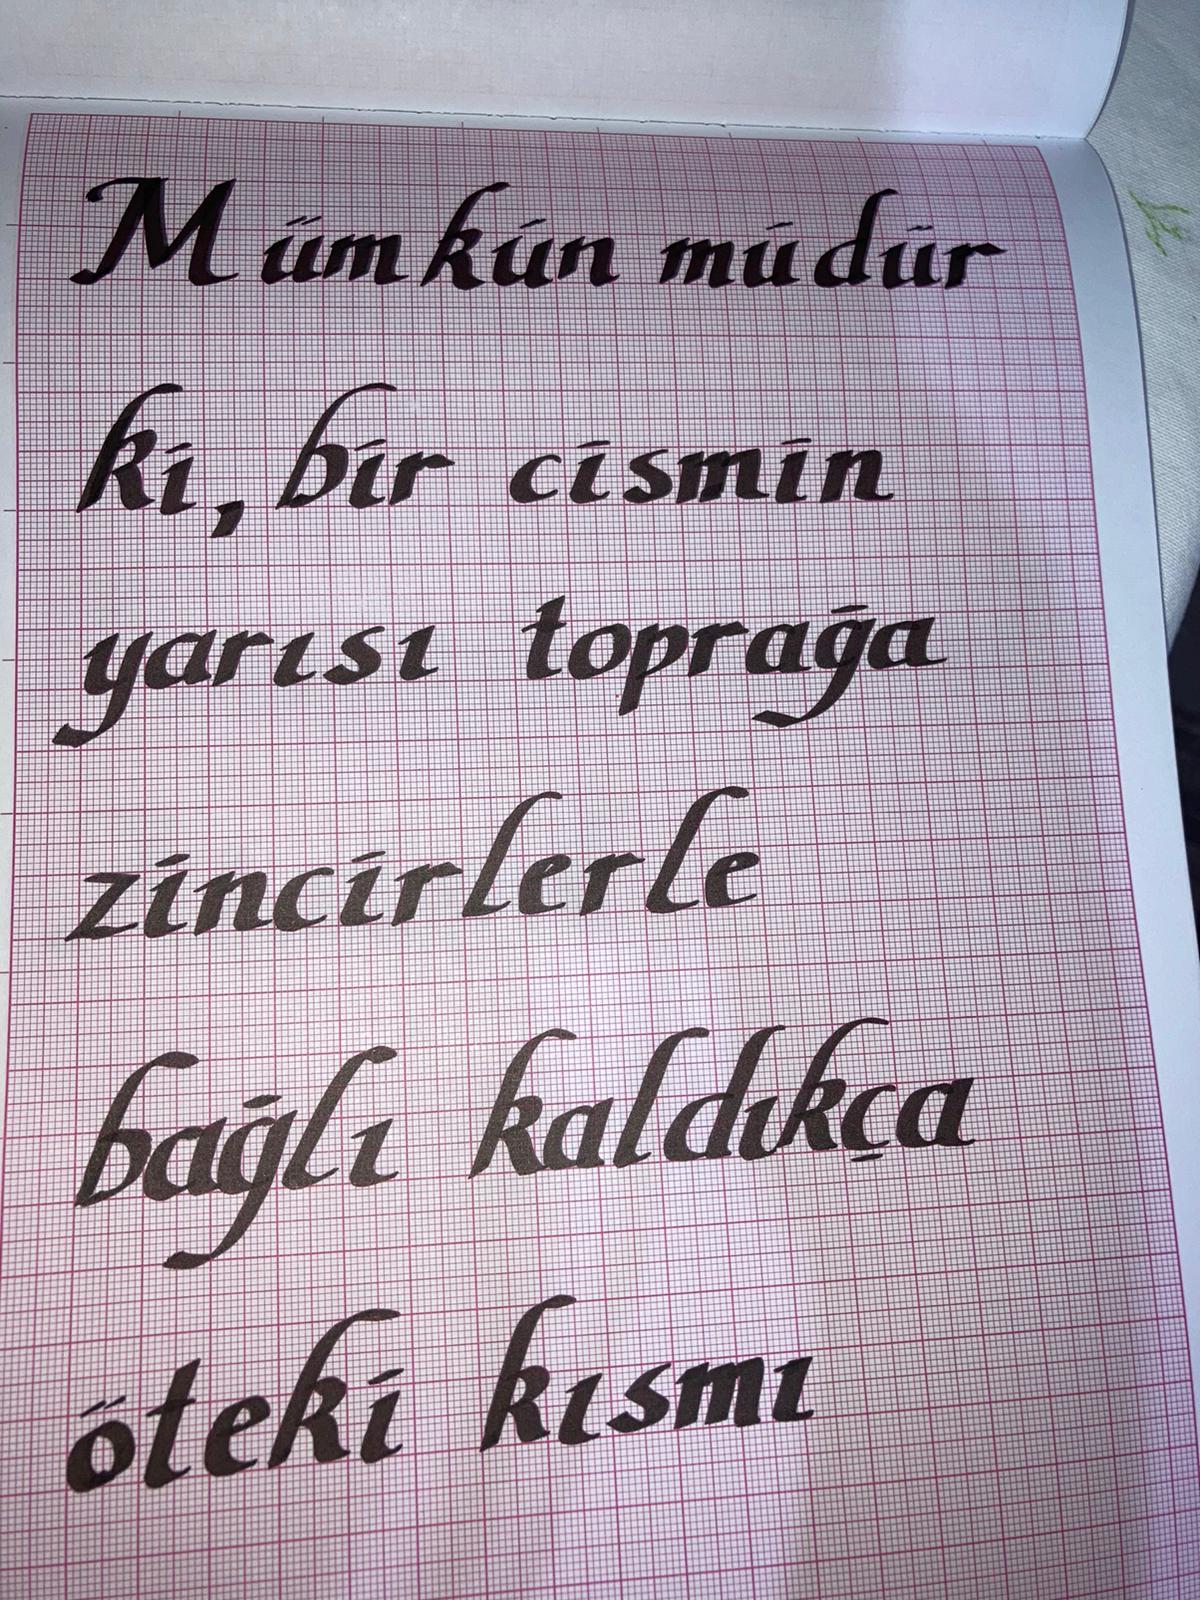 Mümkün müdür
ki, bir cismin
yarısı toprağa
zincirlerle
bağlı kaldıkça
öteki kısmı